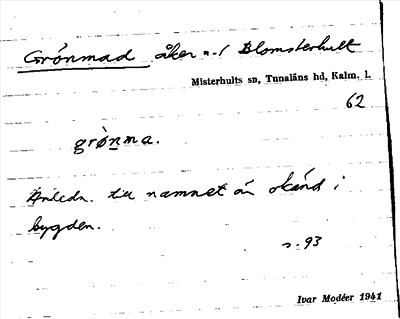 Grönmad åker n. 1 Blomsterhult
Misterhults sn, Tunaläns hd, Kalm. l.
62
grònma.
Anledn. till namnet är okänd i
bygden.
s. 93
Ivar Modéer 1941